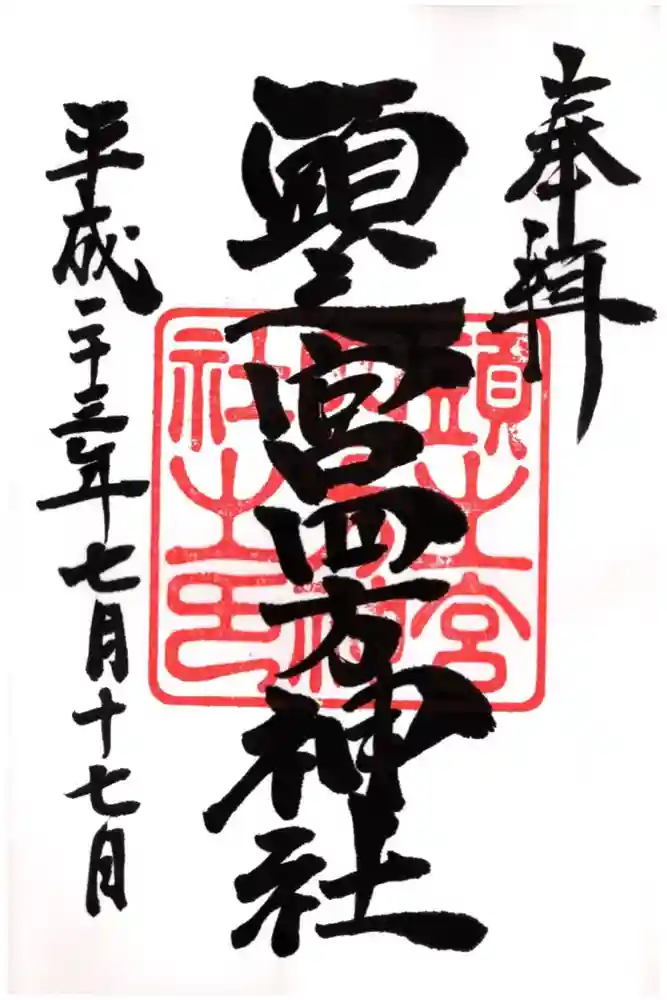 奉拝
頭之宮四方神社
平成二十三年七月十七日
頭之宮
四方神
社之印